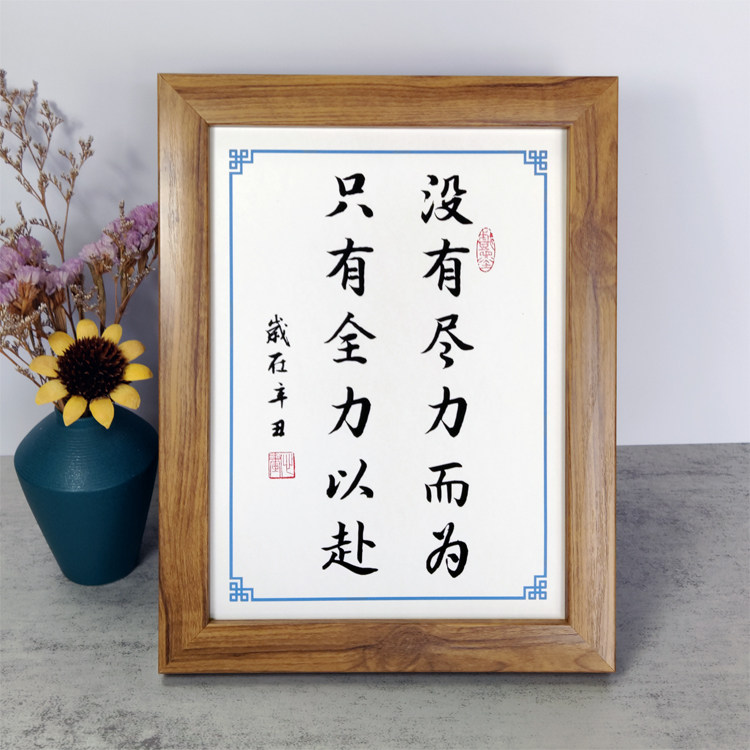 没有尽力而为
只有全力以赴
歲在辛丑